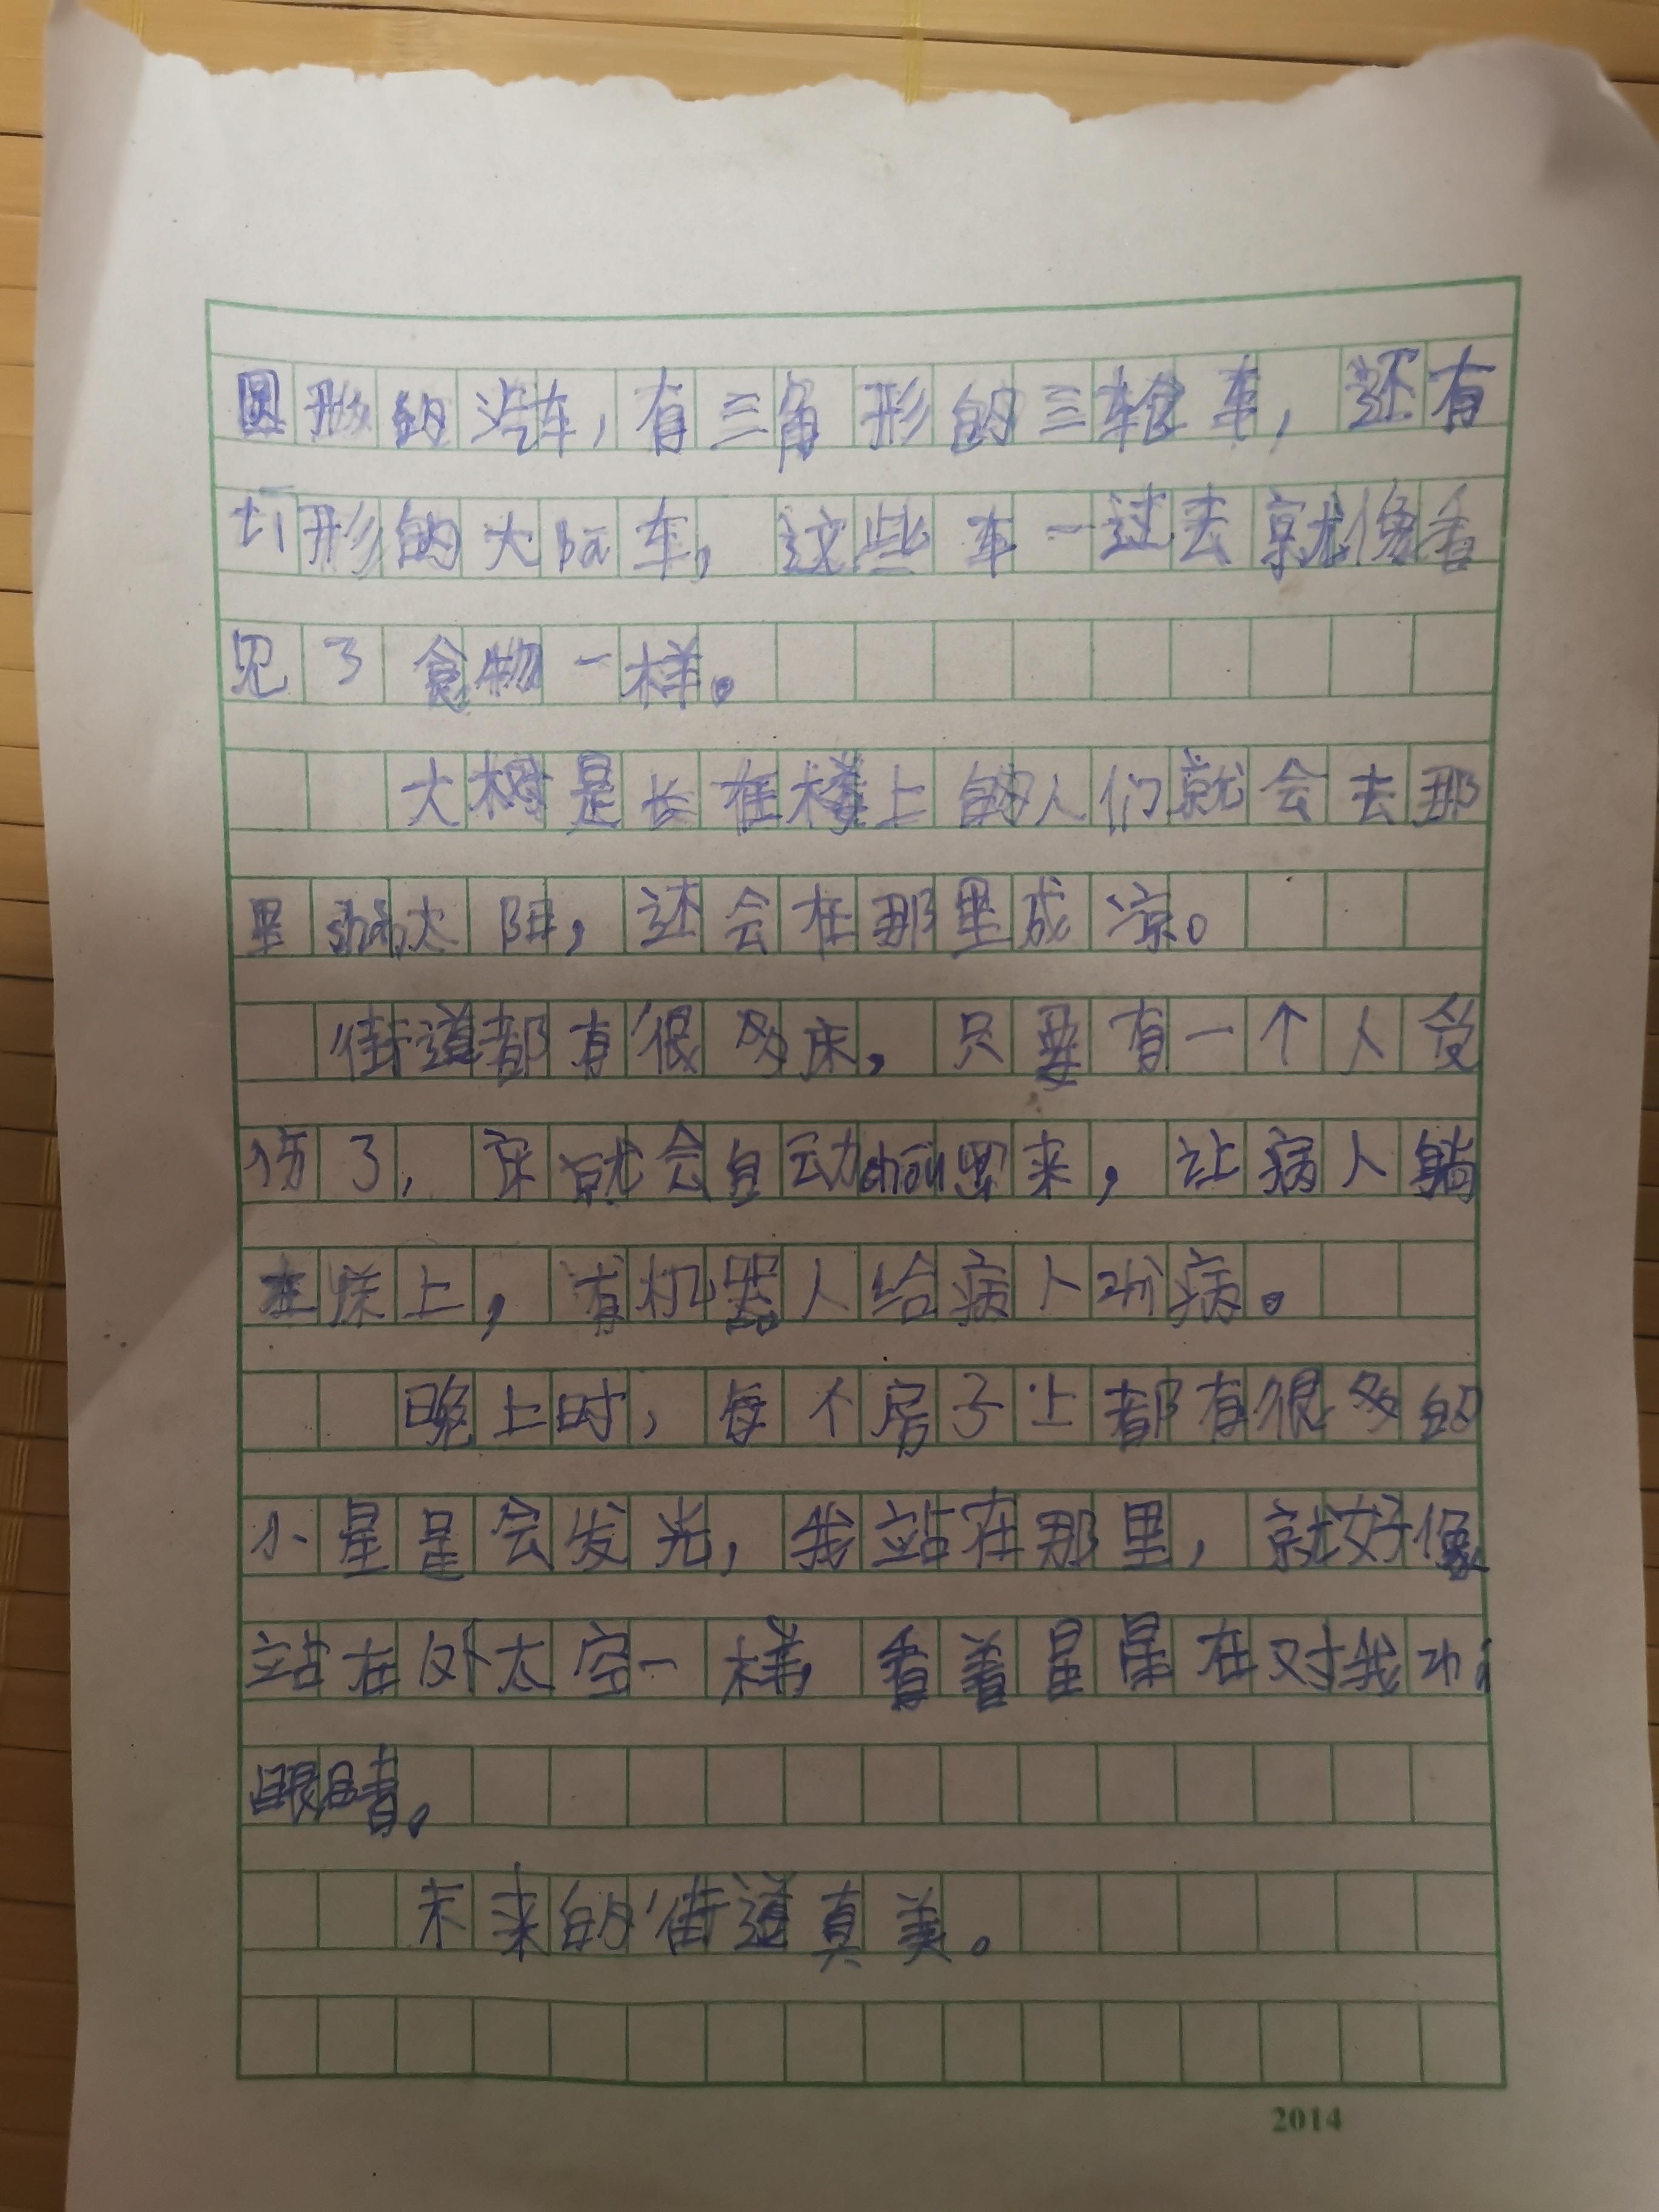 圆形的汽车,有三角形的三轮车,还有
形的大bā车,这些车一过去就像看
见了食物一样。
大树是长在楼上的人们就会去那
里shài太阳,还会在那里成凉。
街道都有很多床,只要有一个人受
伤了,床就会自动chōu出来,让病人躺
在床上,有机器人给病人zhì病。
晚上时,每个房子上都有很多的
小星星会发光,我站在那里,就好像
站在外太空一样,看着星星在对我
眼睛。
未来的街道真美。
2014